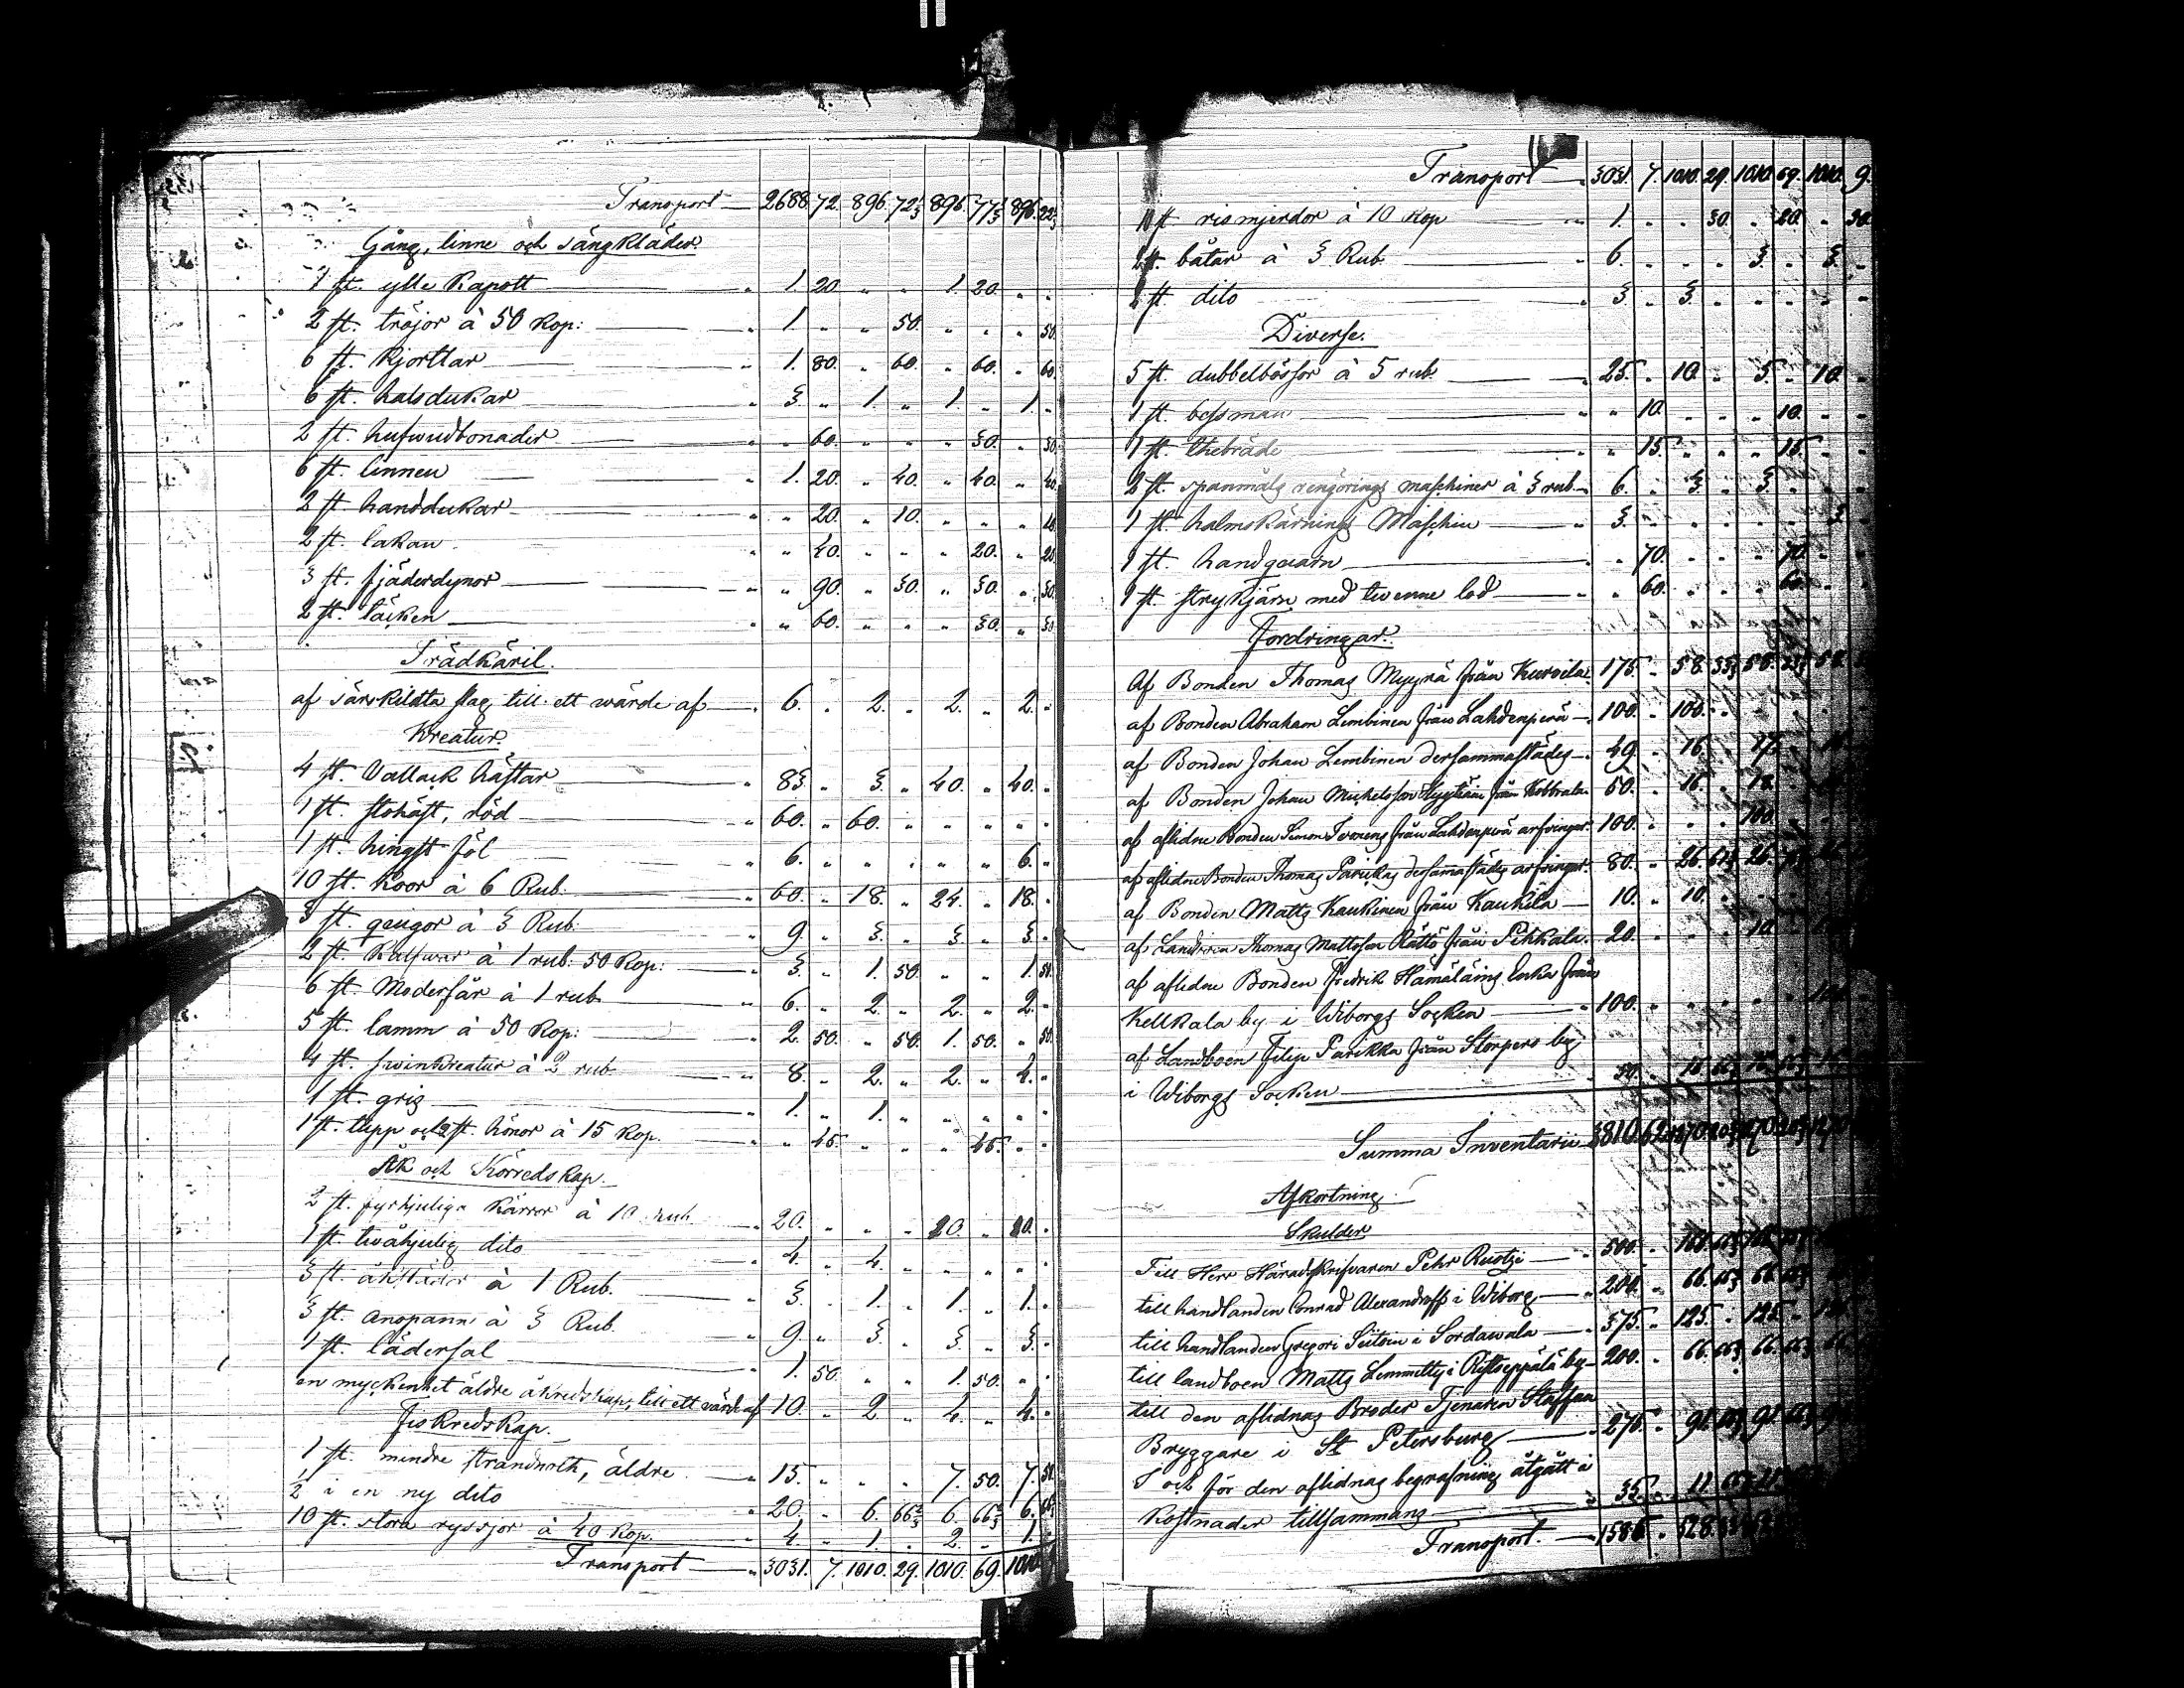 Transport — 2688. 72. 896. 72⅓ 896. 77⅓ 896. 22⅓
Gång, linne och sängkläder.
1 st. ylle kapott — " 1. 20. " " 1. 20. " "
2 st. tröjor à 50 kop: — " 1. " " 50. " " " 50.
6 st. skjortlar — " 1. 80. " 60. " 60. " 60.
6 st. halsdukar — " 3. " 1. " 1. " 1. "
2 st. hufwudbonader — " " 60. " " " 30. " 30.
6 st. linnen — " 1. 20. " 40. " 40. " 40.
2 st. handdukar — " " 20. " 10. " " " 10.
2 st. lakan " " 40. " " " 20. " 20.
3 st. fjäderdynor — " " 90. " 30. " 30. " 30.
2 st. täcken — " " 60. " " " 30. " 30
Trädkäril.
af särskildta slag till ett wärde af — " 6. " 2. " 2. " 2. "
Kreatur.
4 st. Vallack hästar — " 83. " 3. " 40. " 40. "
1 st. stohäst, röd — " 60. " 60. " " " " "
1 st. hingst föl — " 6. " " " " " 6. "
10 st. koor à 6 Rub. — " 60. " 18. " 24. " 18. "
3 st. qvigor à 3 Rub. — " 9. " 3. " 3. " 3. "
2 st. kalfwar à 1 rub: 50 kop: — " 3. " 1. 50. " " 1. 50.
6 st. Moderfår à 1 rub — " 6. " 2. " 2. " 2. "
5 st. lamm à 50 kop: — " 2. 50. " 50. 1. 50. " 50.
4 st. swinkreatur à 2 rub — " 8. " 2. " 2. " 4. "
1 st. gris — " 1. " 1. " " " " "
1 st. tupp och 2 st. hönor à 15 kop. " " 45. " " " 45. " "
Åk och Körredskap.
2 st. fyrhjuliga kärror à 10 rub — " 20. " " " 10. " 10. "
1 st. twåhjulig dito — " 4. " 4. " " " " "
3 st. åkslädar à 1 Rub. — " 3. " 1. " 1. " 1. "
3 st. anspann à 3 Rub. — " 9. " 3. " 3. " 3. "
1 st. lädersal — " 1. 50. " " 1. 50. " "
en myckenhet äldre åkredskap, till ett värde af 10. " 2 " 4. " 4. "
Fiskredskap.
1 st. mindre strandnoth, äldre — " 15. " " " 7. 50. 7. 50.
½ i en ny dito " 20. " 6. 66⅔ 6. 66⅔ 6. 66⅔
10 st. stora ryssjor à 40 kop. " 4. " 1. " 2. " 1. "
Transport — " 3031. 7. 1010. 29. 1010. 69. 1010.
Transport — " 3031. 7. 1010. 29. 1010. 69. 1010. 9.
10 st rismjerdor à 10 kop " 1. " " 30. " 20. " 30
2 st. båtar à 3 Rub. — " 6. " " " 3. " 3. "
1 st. dito — " 3. " 3. " " " " "
Diverse.
5 st. dubbelbössor à 5 rub. — " 25. " 10. " 5. " 10. "
1 st. bessman — " " 10. " " " 10. " "
1 st. thebräde — " " 15. " " " 15. " "
2 st. spanmåls rengörings maschiner à 3 rub. — 6. " 3. " 3. " " "
1 st. halmskärnings Maschin — " 3. " " " " " 3. "
1 st. handqvarn — " " 70. " " " 70. " "
1 st. strykjärn med twenne lod — " " 60. " " " 60. " "
Fordringar.
Af Bonden Thomas Myyrä från Kurvila 175. " 58. 33⅓ 58. 33⅓ 58.
af Bonden Abraham Lembinen från Lahdenperä — 100. " 100. " " "
af Bonden Johan Lembinen dersammastädes — 49. " 16. " 17. " 16
af Bonden Johan Michelsson från 50. " 16. " 18.
af aflidne Bonden Simon från Lahdenperä arfvingar 100. " " " 100.
af aflidne Bonden Thomas Parikas dersamastädes arfvingar. 80. " 26. 66⅔ 26.
af Bonden Matts Kaukinen från Kaukila — 10. " 10.
af Landboen Thomas Mattsson Rättö från Pihkala. 20. " " " 10.
af aflidne Bonden Fredrik Hämäläins Enka från
Kellkala by i Wiborgs Socken — " 100.
af Landboen Filip Parikka från Storpero by
i Wiborgs Socken — 50. " 16. 66⅔
Summa Inventarii 3810. 62.
Afkortning.
Skulder.
Till Herr Häradsskrifvaren Pehr Ruotzi — " 500. " 166. 66⅔
till handlanden Conrad Alexandroff i Wiborg — " 200. " 66. 66⅔ 66.
till handlanden Gregori Siitoin i Sordawala — " 375. " 125. " 125.
till landboen Matts Lemmitty i by — 200. " 66. 66⅔ 66. 66⅔ 66.
till den aflidnas Broder Tjenaren Staffan
Bryggare i St Petersburg — " 275. " 91. 66⅔ 91.
T och för den aflidnas begrafning åtgått i
kostnader tillsammans — " 35. " 11.
Transport. — 1585. " 528.